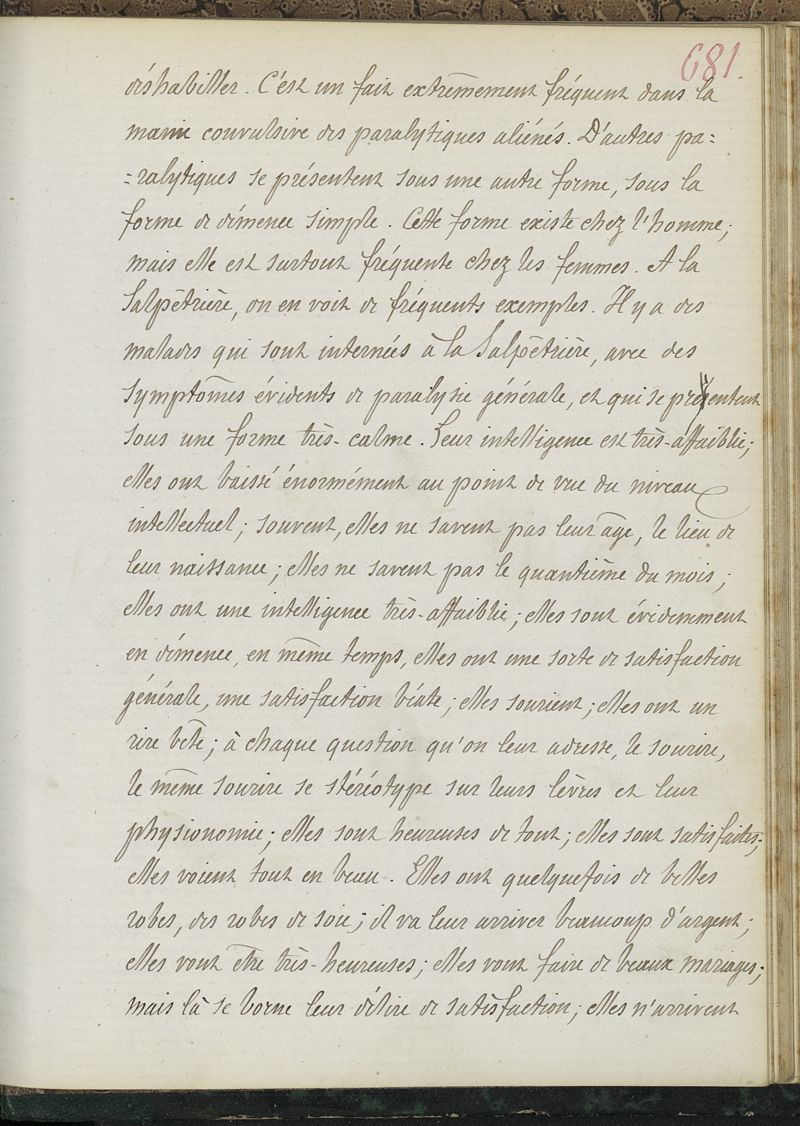 681.
déshabiller. C'est un fait extrêmement fréquent dans la
manie convulsive des paralytiques aliénés. D'autres pa=
=ralytiques se présentent sous une autre forme, sous la
forme de démence simple. Cette forme existe chez l'homme;
mais elle est surtout fréquente chez les femmes. A la
Salpêtrière, on en voit de fréquents exemples. Il y a des
malades qui sont internées à la Salpêtrière, avec des
symptômes évidents de paralysie générale, et qui se présentent
sous une forme très-calme. Leur intelligence est très-affaiblie;
elles ont baissé énormément au point de vue du niveau
intellectuel; souvent, elles ne savent pas leur âge, le lieu de
leur naissance; elles ne savent pas le quantième du mois;
elles ont une intelligence très-affaiblie; elles sont évidemment
en démence, en même temps, elles ont une sorte de satisfaction
générale, une satisfaction béate; elles sourient; elles ont un
rire bête; à chaque question qu'on leur adresse, le sourire,
le même sourire se stéréotype sur leurs lèvres et leur
physionomie; elles sont heureuses de tout; elles sont satisfaites;
elles voient tout en beau. Elles ont quelquefois de belles
robes, des robes de soie; il va leur arriver beaucoup d'argent;
elles vont être très-heureuses; elles vont faire de beaux mariages;
mais là se borne leur délire de satisfaction; elles n'arrivent